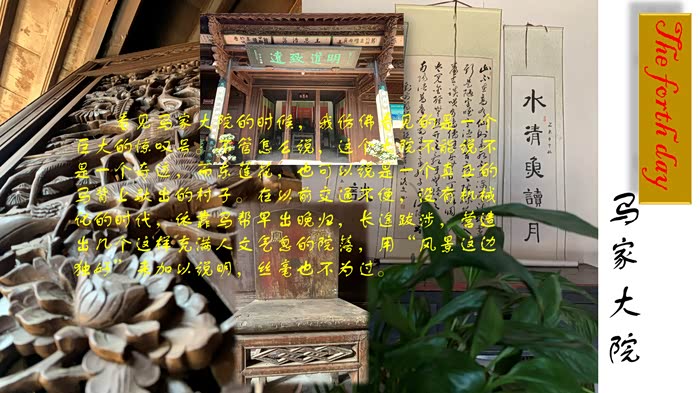 The forth day
马家大院
遠致道明
看见马家大院的时候，我仿佛看见的是一个
巨大的惊叹号。不管怎么说，这个大院不能说不
是一个奇迹，而东莲花，也可以说是一个真正的
马背上驮出的村子。在以前交通不便，没有机械
化的时代，依靠马帮早出晚归，长途跋涉，营造
出几个这样充满人文气息的院落，用“风景这边
独好”来加以说明，丝毫也不为过。
水清魚讀月